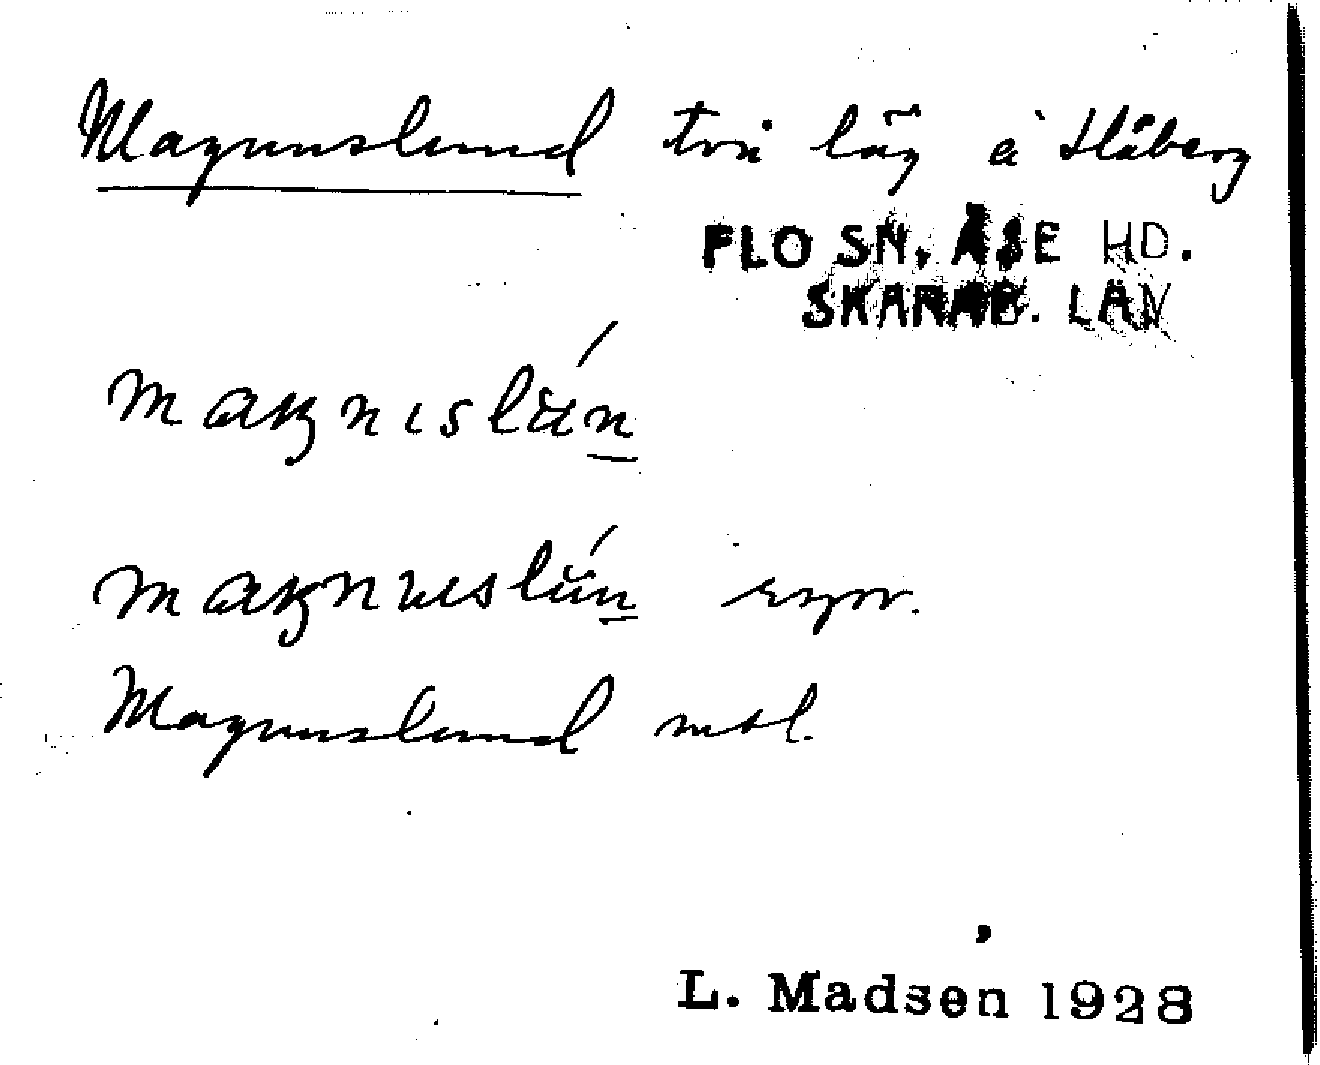 Magnuslund två läg à Håberg
FLO SN. ÅSE HD.
SKARAB. LÄN
magnislún
magnuslún
Magnuslund mtl.
L. Madsen 1928